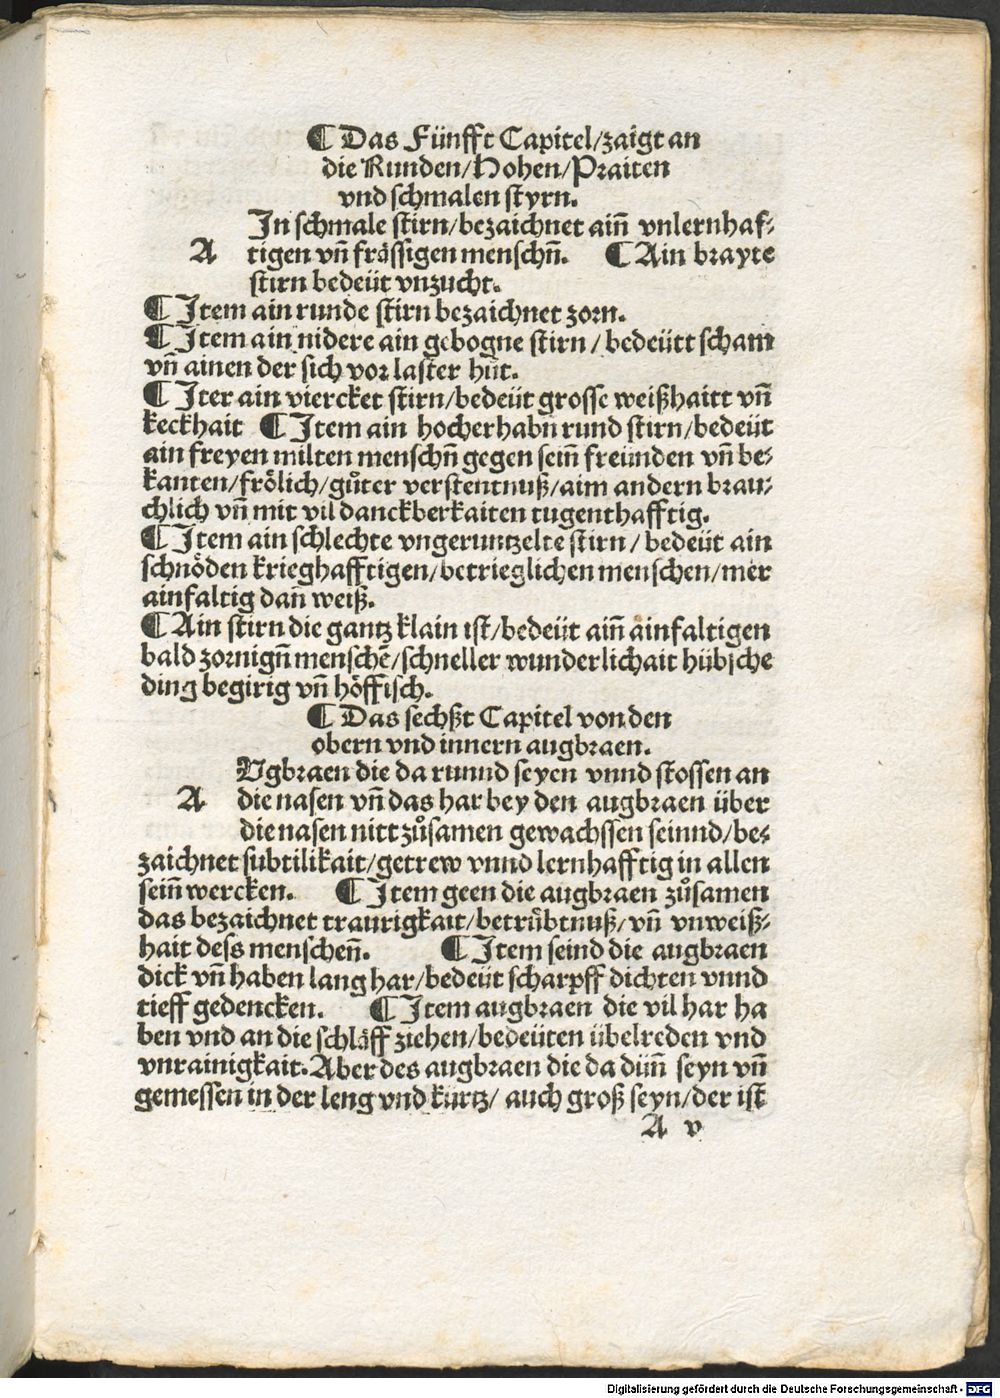 ¶ Das Fünfft Capitel/zaigt an
die Runden/Hohen/Praiten
vnd schmalen styrn.
A In schmale stirn/bezaichnet aiñ vnlernhaf⸗
tigen vñ frässigen menschñ. ¶ Ain brayte
stirn bedeüt vnzucht.
¶ Item ain runde stirn bezaichnet zorn.
¶ Item ain nidere ain gebogne stirn / bedeütt scham
vñ ainen der sich vor laster hüt.
¶ Iter ain viercket stirn/bedeüt grosse weißhaitt vñ
keckhait ¶ Item ain hocherhabñ rund stirn/bedeüt
ain freyen milten menschñ gegen seiñ freünden vñ be⸗
kanten/frölich/gůter verstentnuß/aim andern brau⸗
chlich vñ mit vil danckberkaiten tugenthafftig.
¶ Item ain schlechte vngeruntzelte stirn / bedeüt ain
schnöden krieghafftigen/betrieglichen menschen/mer
ainfaltig dañ weiß.
¶ Ain stirn die gantz klain ist/bedeüt aiñ ainfaltigen
bald zornigñ menschē/schneller wunderlichait hübsche
ding begirig vñ höffisch.
¶ Das sechßt Capitel von den
obern vnd innern augbraen.
A Vgbraen die da runnd seyen vnnd stossen an
die nasen vñ das har bey den augbraen über
die nasen nitt zůsamen gewachssen seinnd/be⸗
zaichnet subtilikait/getrew vnnd lernhafftig in allen
seiñ wercken. ¶ Item geen die augbraen zůsamen
das bezaichnet traurigkait/betrübtnuß/vñ vnweiß⸗
hait dess menscheñ. ¶ Item seind die augbraen
dick vñ haben lang har/bedeüt scharpff dichten vnnd
tieff gedencken. ¶ Item augbraen die vil har ha
ben vnd an die schläff ziehen/bedeüten übelreden vnd
vnrainigkait. Aber des augbraen die da düñ seyn vñ
gemessen in der leng vnd kürtz/ auch groß seyn/der ist
A v
Digitalisierung gefördert durch die Deutsche Forschungsgemeinschaft - DFG